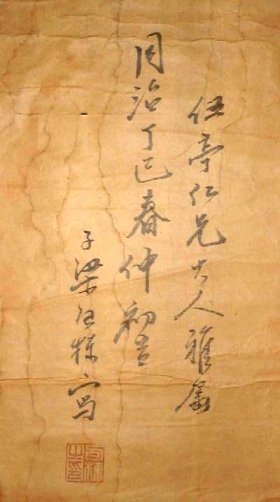 伍亭仁兄大人雅属
同治丁巳春仲初吉
子梁写